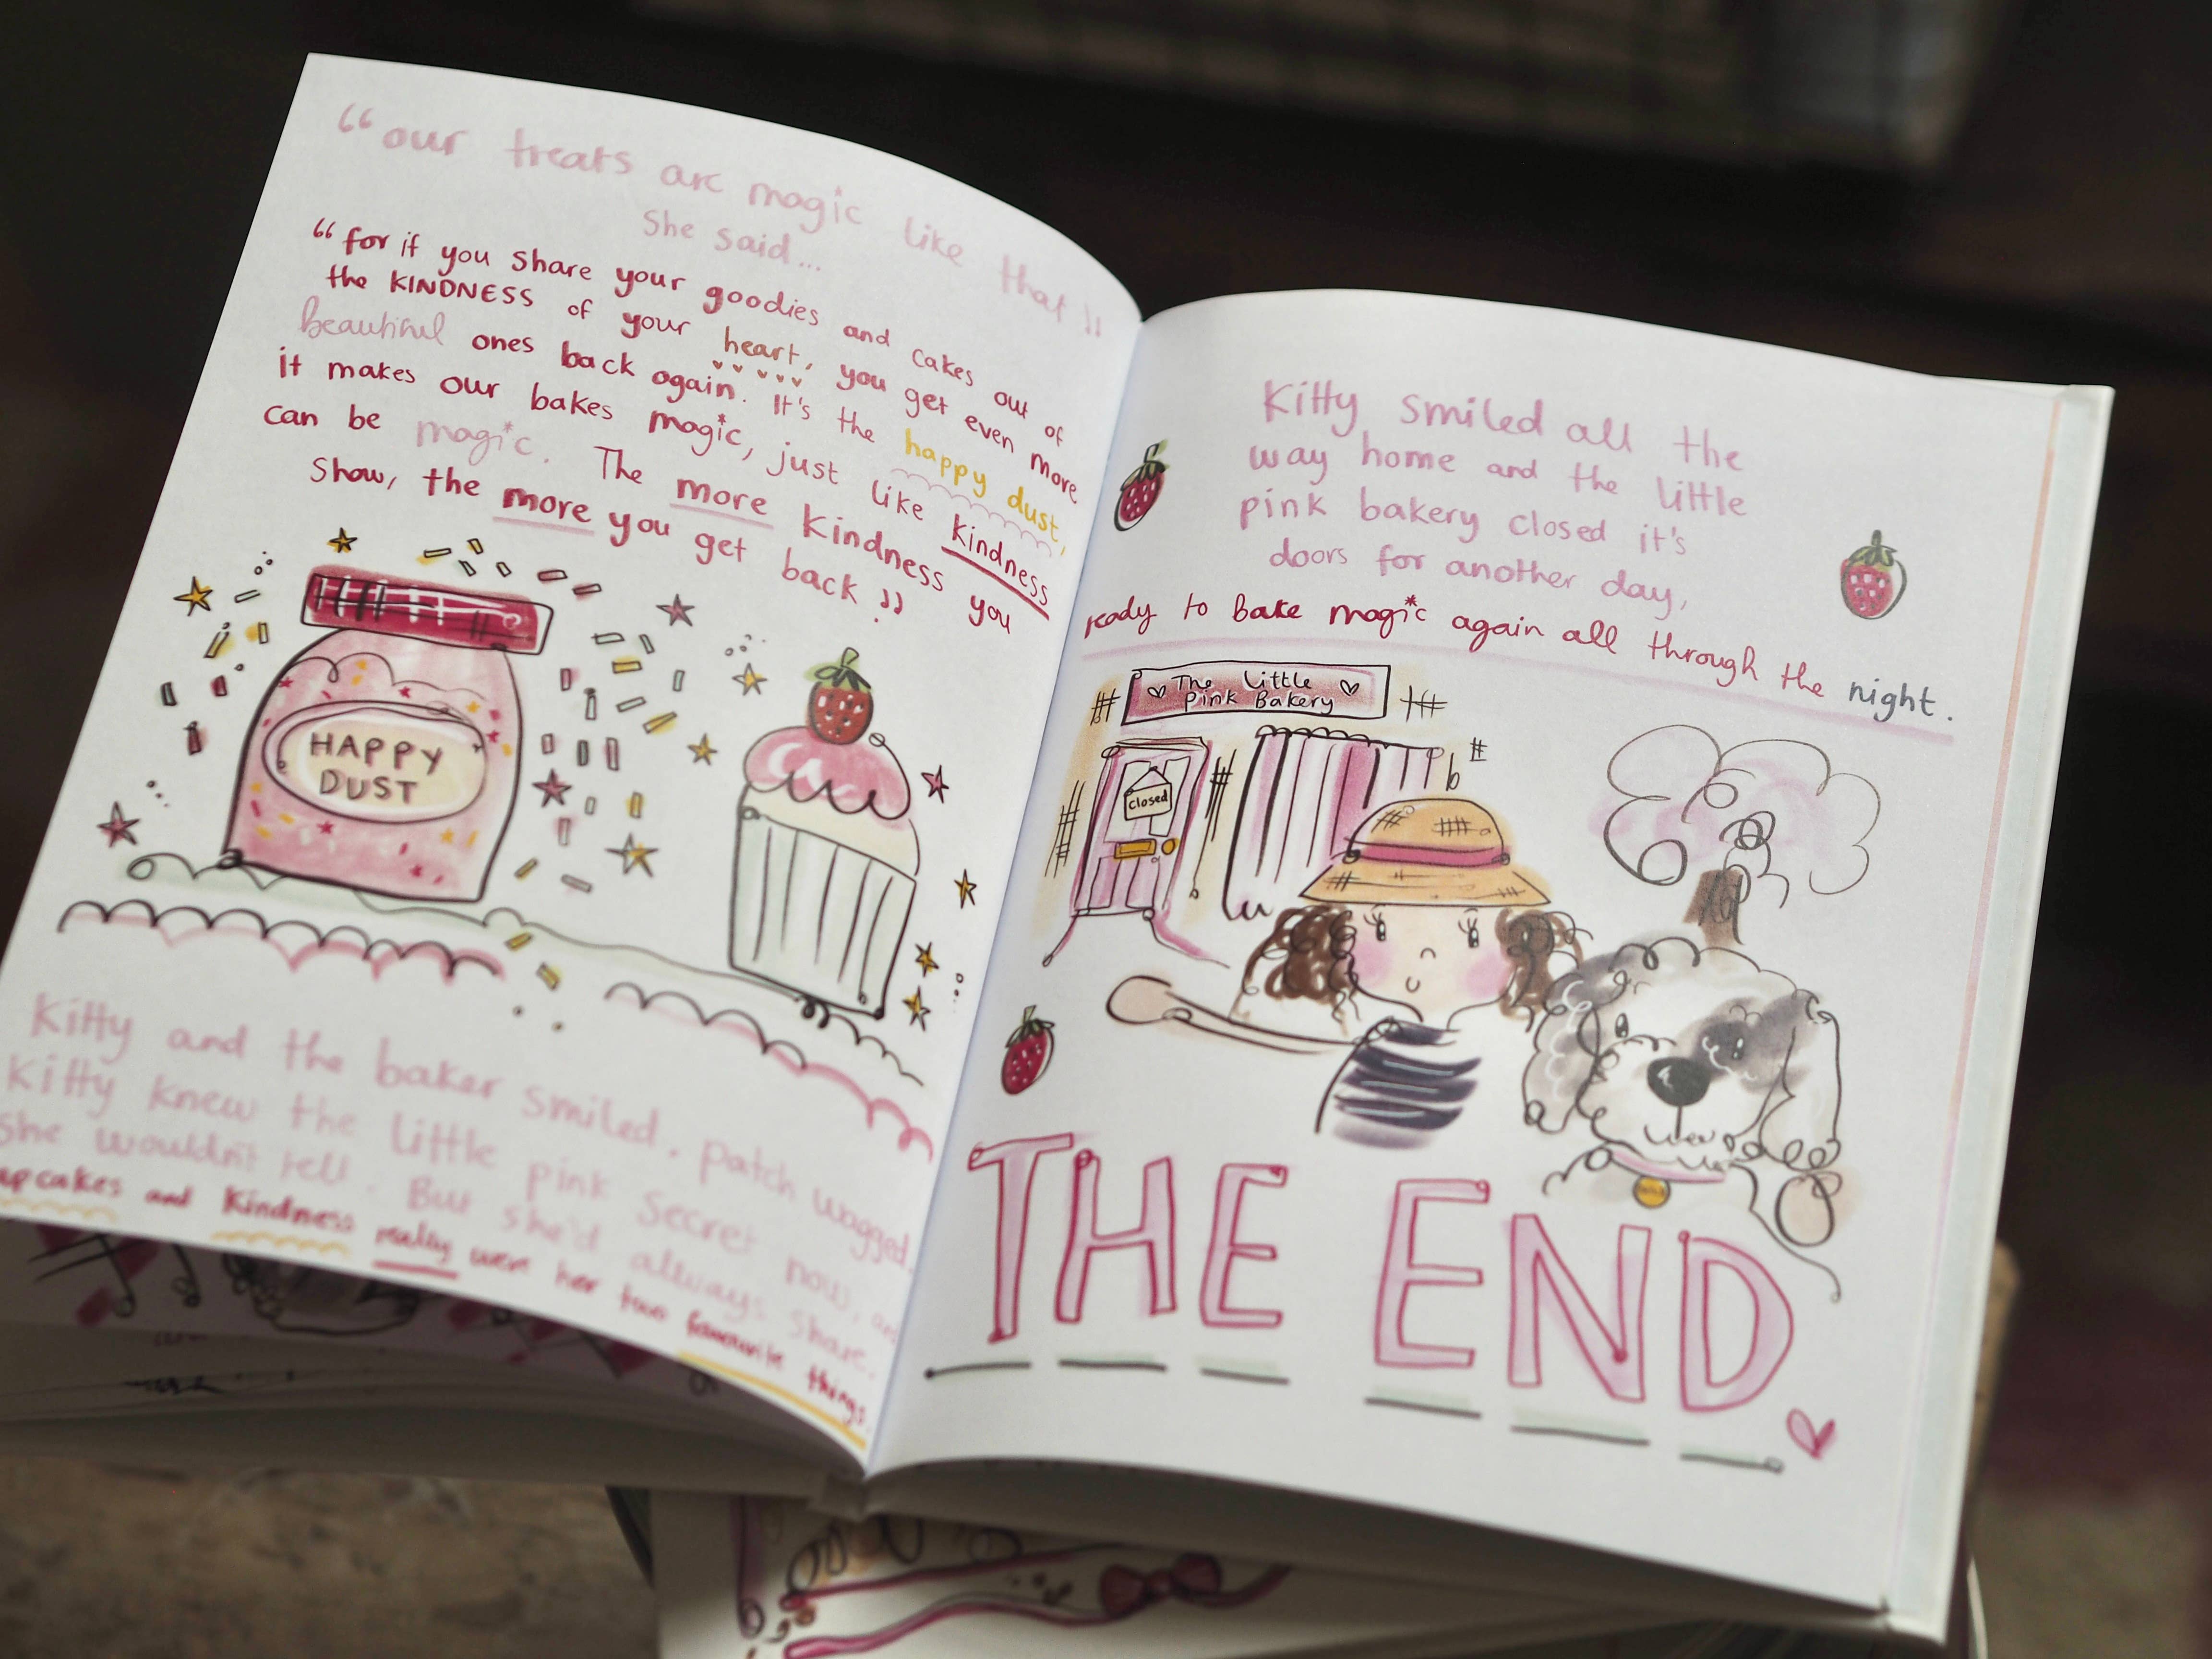 “our treats are magic like that”
She said...
“for if you share your goodies and cakes out of
the KINDNESS of your heart, you get even more
beautiful ones back again. It's the happy dust,
it makes our bakes magic, just like kindness
can be magic. The more kindness you
show, the more you get back”
HAPPY
DUST
Kitty and the baker smiled. Patch wagged,
Kitty knew the little pink secret now, and
She wouldn't tell. But she'd always share.
upcakes and kindness really were her two favourite things.
Kitty smiled all the
way home and the little
pink bakery closed it's
doors for another day,
ready to bake magic again all through the night.
The Little
Pink Bakery
Closed
THE END